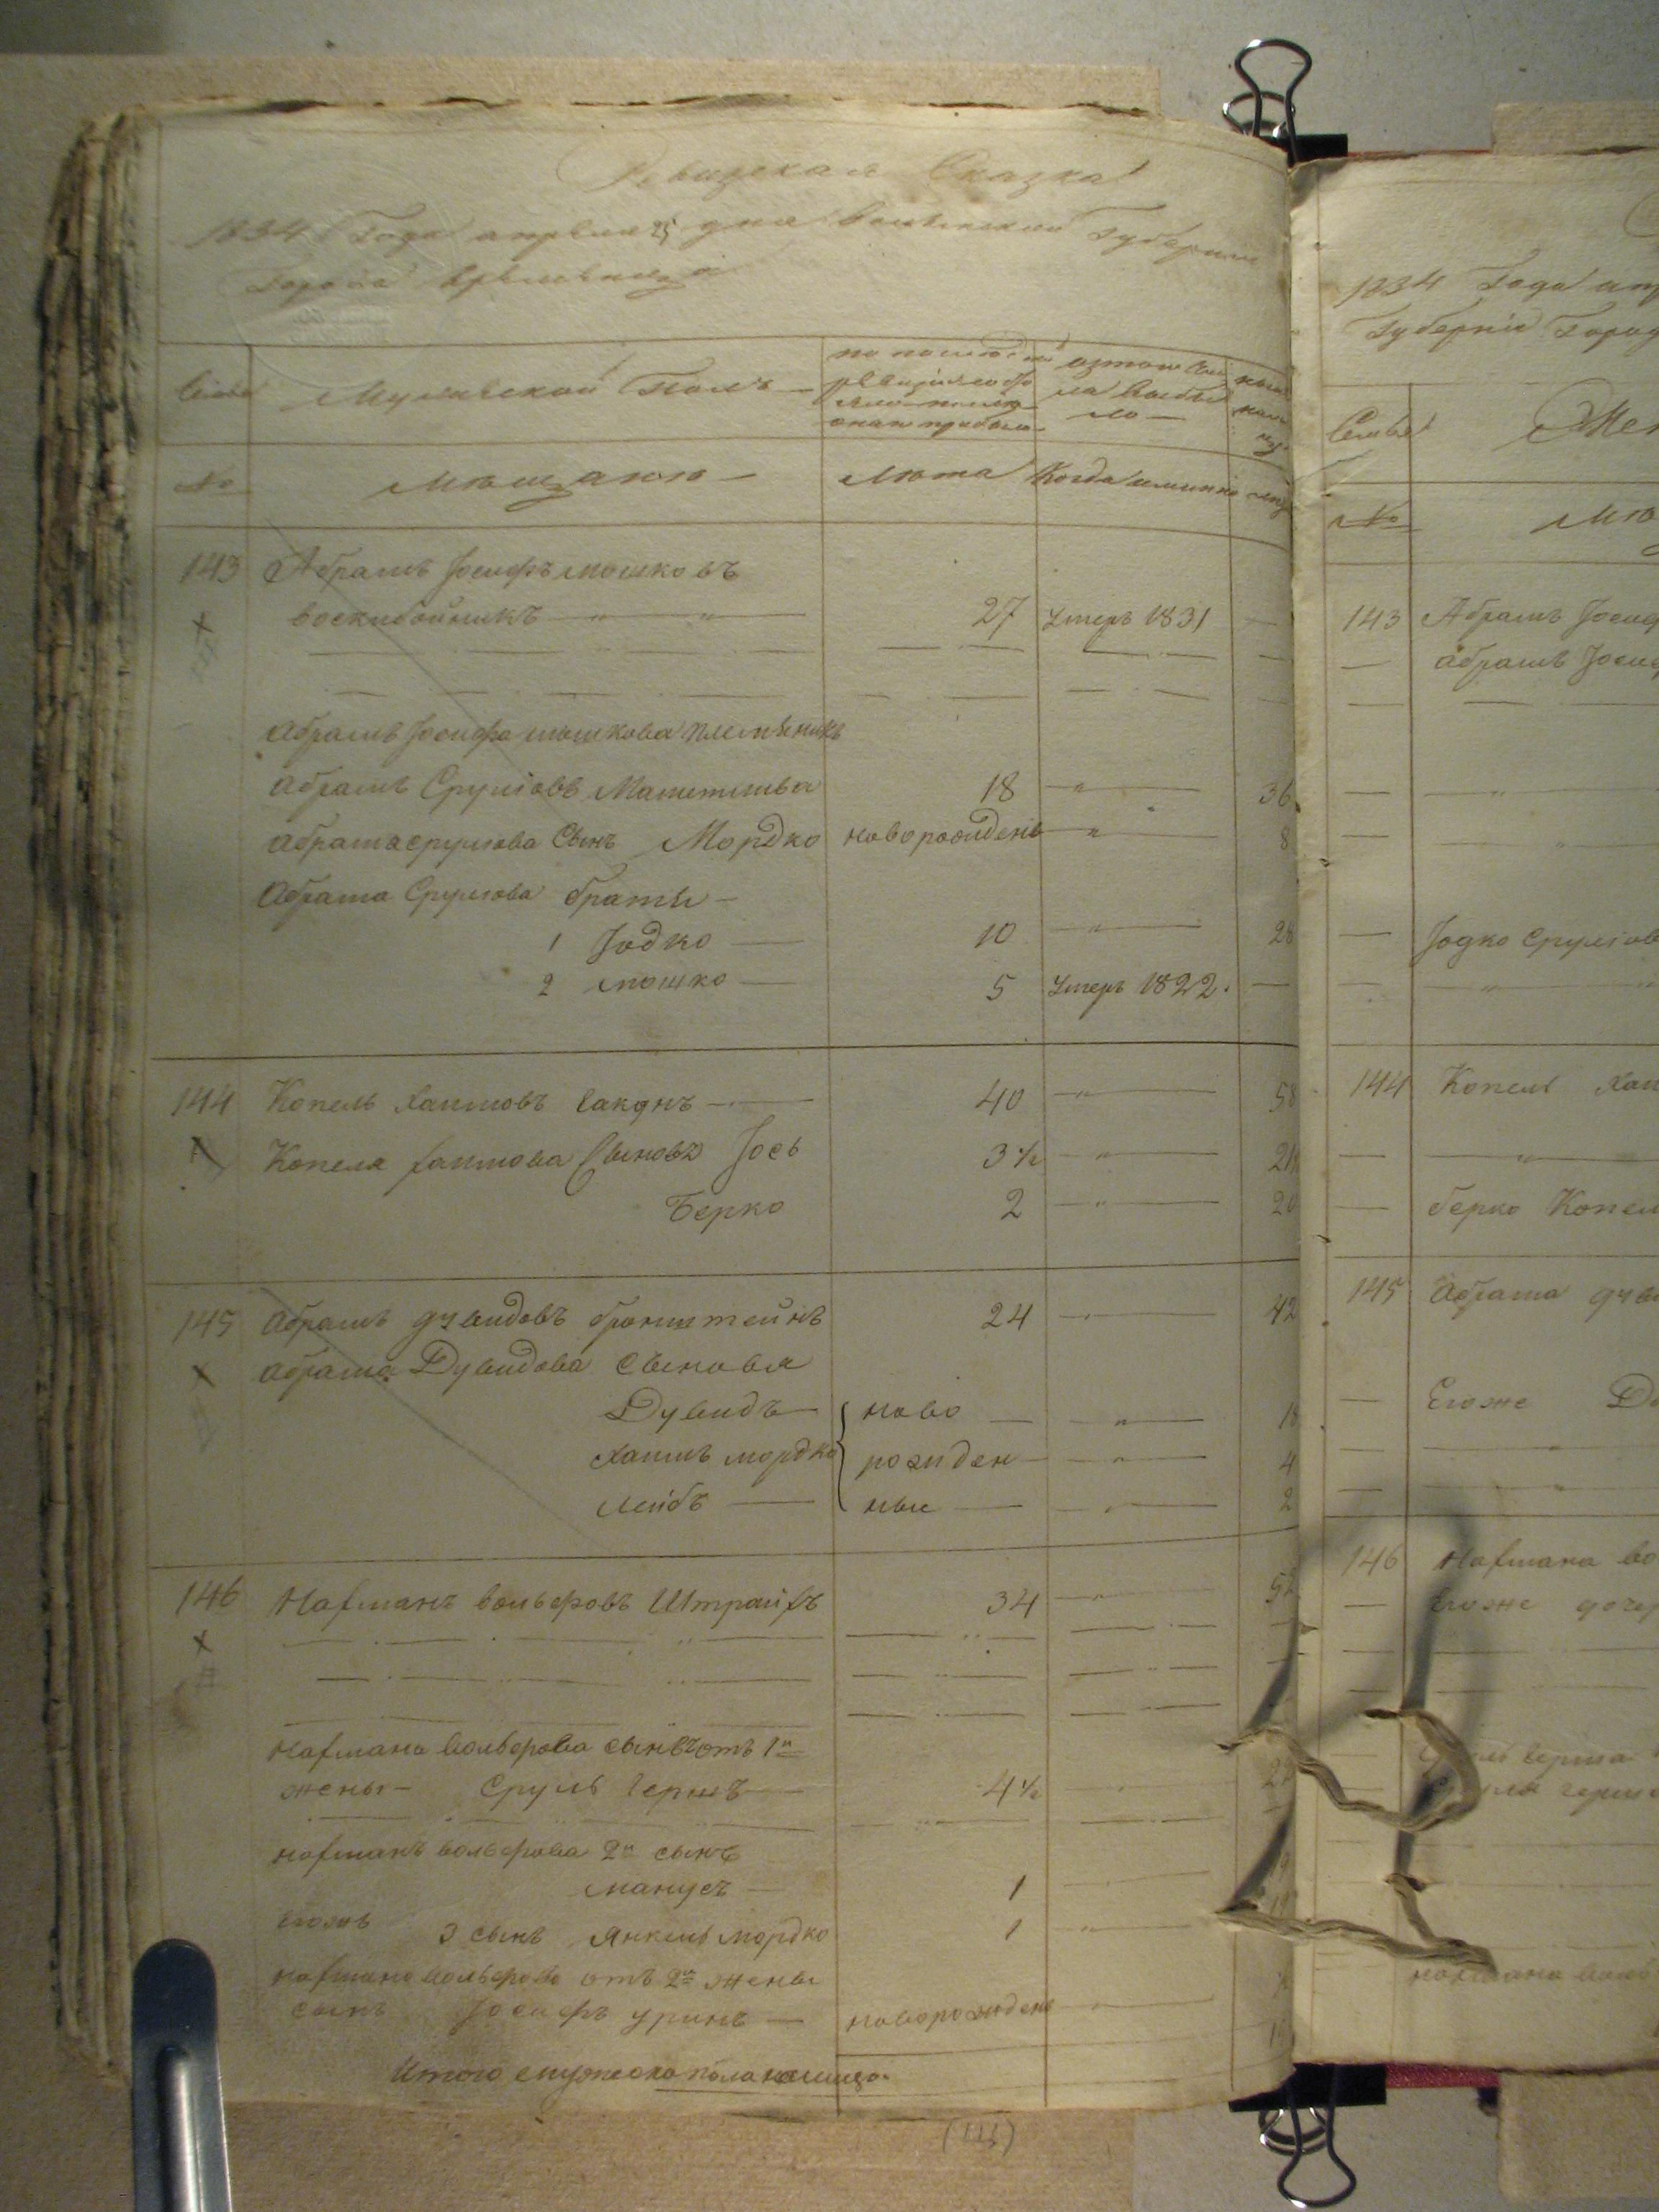 Ревизская Сказка
1834 Года апреля 25 дня Волынской Губернии
Города Кременца
Семьи
Мужеский Полъ
по последней
ревизии состо
яло и после
оная прибыло
изтого Чис
ла выбы
ло
ныне
№
мещане
Лета
Когда именно
143
Абрамъ Іосифъ мошковъ
воскобойникъ
27
Умеръ 1831
Абрамъ Іосифа мошкова племяникъ
Абрамъ Срулiовъ Мататинва
18
36
Абрама срулiова Сынъ Мордко
новорожденъ
8
Абрама Срулiова братья
1 Іодко
10
28
2 мошко
5
Умеръ 1822.
144
Копель Хаимовъ
40
58
Копеля Хаимова Сыновья Іось
3 1/2
21
Берко
2
20
145
Абрамъ дувидовъ бронштейнъ
24
42
Абрама Дувидова Сыновья
Дувидъ
ново
18
Хаимъ мордко
рожден
4
Лейбъ
ные
2
146
Нахманъ вольфовъ Штрайхъ
34
52
Нахмана вольфова сынъ отъ 1й
жены Сруль Гершъ
4 1/2
Нахмана вольфова 2й сынъ
манусъ
1
егожъ 3 сынъ Янкель мордко
1
Нахмана вольфова отъ 2й жены
сынъ Іосифъ уринъ
новорожденъ
Итого мужеска пола налицо
1834 Года апр
Губернiи Город
Семьи
Жен
№
Ме
143
Абрамъ Іосиф
Абрамъ Іосиф
Іодко срулiов
144
Копель Хаи
берко Копел
145
Абрама дуви
Егоже
146
Нахмана во
Егоже дочер
нахмана воль